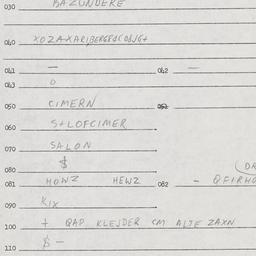 030 BAZUNDERE
040
041 — 042 —
043 0
050 CIMERN 051
060 S+LOFCIMER
070 SALON
080 $
081 HOWZ HEWZ 082 - QFIRHO
090 KIX
100 + QAD KLEJDER CM ALTE ZAXN
110 $ —